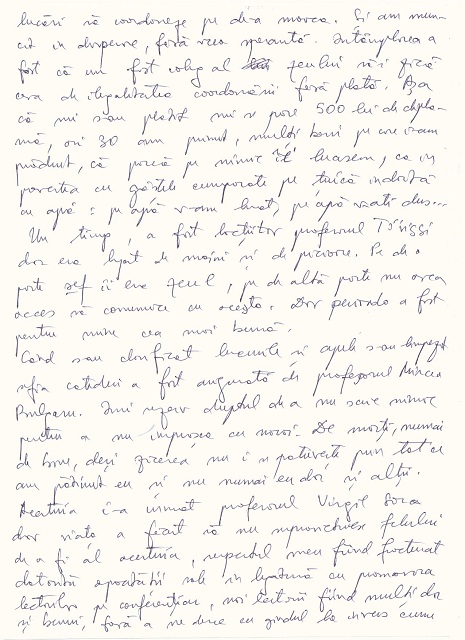 lucrări să coordoneze pe d-a marca. Și am mun-
cit în disperare, fără vreo speranță. Întâmplarea a
fost că un fost coleg al șefului să-i zică
era de ilegalitatea coordonării fără plată. Așa
că mi s-au plătit mi se pare 500 lei de diplo-
mă, ori 30 am primit, mulți bani pe care i-am
pierdut, că parcă pe mine îi luasem, ca în
povestea cu gâștele cumporate pe țuică îndoită
cu apă: pe apă v-am luat, pe apă v-ați dus...
Un timp, a fost profesorul
dar era legat de mașini și de picioare. Pe de o
parte șef îi era șeful, pe de altă parte nu avea
acces să comunice cu acesta. Dar perioada a fost
pentru mine cea mai bună.
Când s-au clarificat lucrurile și apele s-au limpezit
șefia catedrei a fost asigurată de profesorul Mircea
Îmi rezerv dreptul de a nu scrie nimic
pentru a nu împrosca cu noroi. De morți, numai
de bine, deși zicerea nu i se potrivește prin tot ce
am pătimit eu și nu numai eu dar și alții.
Acestuia i-a urmat profesorul Virgil
dar viața a făcut să nu felului
de a fi al acestuia, respectul meu fiind fracturat
datorită apariției sale în legătură cu promovarea
lectorilor pe conferențiar, noi lectorii fiind mulți dar
și bunii, fără a ne duce cu gândul la vreos cumu